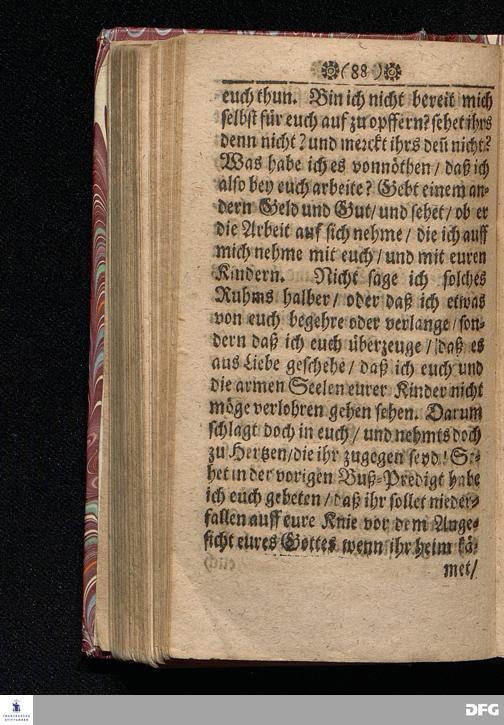 (88)
euch thun. Bin ich nicht bereit mich
selbst für euch auf zu opffern? sehet ihrs
denn nicht? und merckt ihrs deñ nicht?
Was habe ich es vonnöthen / daß ich
also bey euch arbeite? Gebt einem an-
dern Geld und Gut / und sehet / ob er
die Arbeit auf sich nehme / die ich auff
mich nehme mit euch / und mit euren
Kindern. Nicht sage ich solches
Ruhms halber / oder daß ich etwas
von euch begehre oder verlange / son-
dern daß ich euch überzeuge / daß es
aus Liebe geschehe / daß ich euch und
die armen Seelen eurer Kinder nicht
möge verlohren gehen sehen. Darum
schlagt doch in euch / und nehmts doch
zu Hertzen / die ihr zugegen seyd! Se-
het in der vorigen Buß-Predigt habe
ich euch gebeten / daß ihr sollet nieder-
fallen auff eure Knie vor dem Ange-
sicht eures Gottes wenn ihr heim kä-
met /
FRANCKESCHE
STIFTUNGEN
DFG